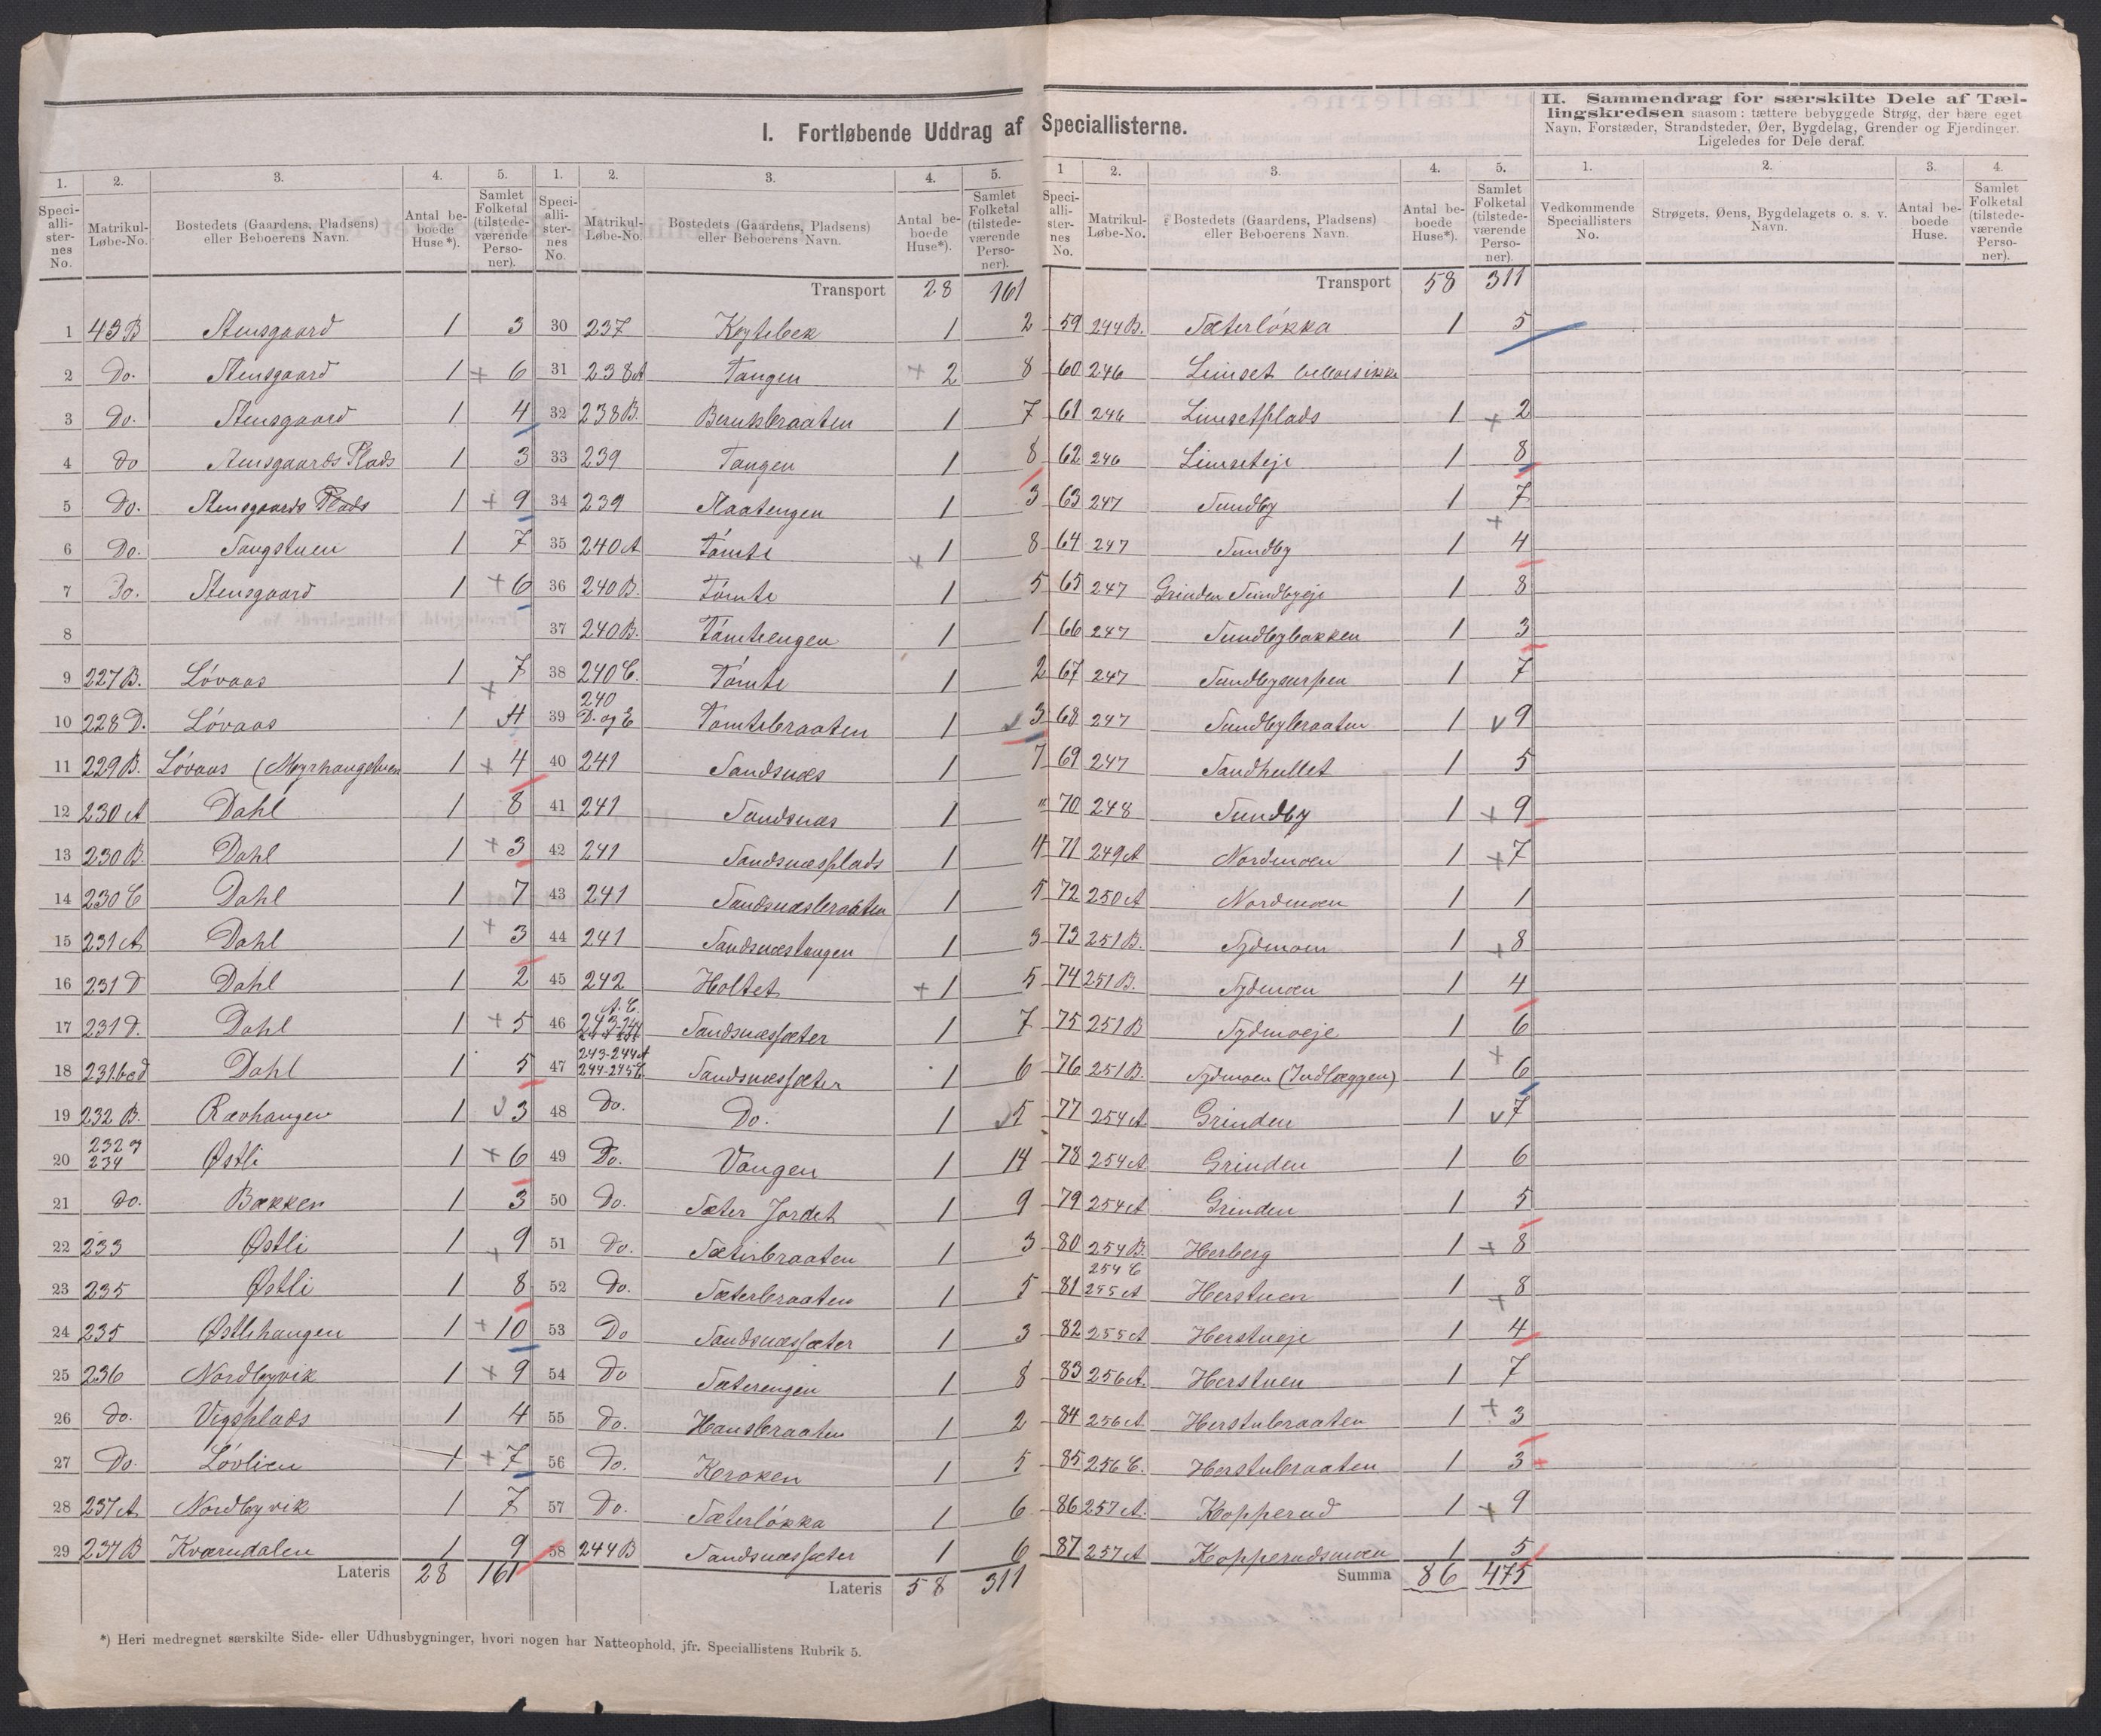 I. Fortløbende Uddrag af Speciallisterne.
II. Sammendrag for særskilte Dele af Tæl-
lingskredsen saasom: tættere bebyggede Strøg, der bære eget
Navn, Forstæder, Strandsteder, Øer, Bygdelag, Grender og Fjerdinger.
Ligeledes for Dele deraf.
1. 2. 3. 4. 5.
Speci-alli-ster-nes No. Matrikul-Løbe-No. Bostedets (Gaardens, Pladsen) eller Beboerens Navn. Antal be-boede Huse*). Samlet Folketal (tilstede-værende Perso-ner).
1 43B Stensgaard 1 3
2 Do. Stensgaard 1 + 6
3 Do. Stensgaard 1 4
4 Do Stensgaards Plads 1 3
5 Do. Stensgaards Plads 1 + 9
6 Do. Tangstuen 1 7
7 Do. Stensgaard 1 + 6
8
9 227B. Løvaas 1 7
10 228D. Løvaas 1 + 4
11 229B. Løvaas (Myrhaugebuen 1 + 4
12 230A Dahl 1 8
13 230B. Dahl 1 + 3
14 230C Dahl 1 7
15 231A Dahl 1 + 3
16 231D Dahl 1 2
17 231D. Dahl 1 + 5
18 231bcd Dahl 1 5
19 232B. Rævhaugen 1 v 3
20 232 og 234 Østli 1 + 6
21 do. Bakken 1 3
22 233 Østli 1 + 9
23 235 Østli 1 8
24 235 Østlihaugen 1 + 10
25 236 Nordbyvik 1 + 9
26 do. Vigsplads 1 4
27 Do. Løvlien 1 + 7
28 237A Nordbyvik 1 7
29 237B Kværndalen 1 9
Lateris 28 161
1. 2. 3. 4. 5.
Speci-alli-ster-nes No. Matrikul-Løbe-No. Bostedets (Gaardens, Pladsens) eller Beboerens Navn. Antal be-boede Huse*). Samlet Folketal (tilstede-værende Perso-ner).
Transport 28 161
30 237 Kytebek 1 2
31 238A Tangen + 2 8
32 238B. Bernhbraaten 1 7
33 239 Tangen 1 8
34 239 Slaatengen 1 3
35 240A Tømte + 1 8
36 240B. Tømte 1 5
37 240B. Tømteengen 1 1
38 240C. Tømte 1 2
39 240 D. og E Tømtebraaten 1 v 3
40 241 Sandsnæs 1 7
41 241 Sandsnæs 1 "
42 241 Sandsnæsplads 1 4
43 241 Sandsnæsbraaten 1 5
44 241 Sandsnæstangen 1 3
45 242 Holtet + 1 5
46 Sandsnæssæter 1 7
47 243-244A 244-245C Sandsnæssæter 1 6
48 Do. Do. 1 v 5
49 Do. Vangen 1 14
50 Do. Sæter Jordet 1 9
51 Do. Sæterbraaten 1 3
52 Do. Sæterbraaten 1 5
53 Do Sandsnæssæter 1 3
54 Do Sæterengen 1 8
55 Do. Hansbraaten 1 2
56 Do. Kroken 1 5
57 Do. Sæterløkka 1 6
58 244B Sandsnæssæter 1 6
Lateris 58 311
1 2. 3. 4. 5.
Speci-alli-ster-nes No. Matrikul-Løbe-No. Bostedets (Gaardens, Pladsens) eller Beboerens Navn. Antal be-boede Huse*). Samlet Folketal (tilstede-værende Perso-ner).
Transport 58 311
59 244B. Sæterløkka 1 5
60 246 Limset beboes ikke
61 246 Limsetplads 1 + 2
62 246 Limseteje 1 8
63 247 Sundby 1 7
64 247 Sundby 1 + 4
65 247 Grinden Sundbyeje 1 8
66 247 Sundbybakken 1 3
67 247 Sundbysurpen 1 7
68 247 Sundbybraaten 1 v 9
69 247 Sandhullet 1 5
70 248 Sundby 1 + 9
71 249A Nordmoen 1 + 7
72 250A Nordmoen 1 1
73 251B. Sydmoen 1 + 8
74 251B. Sydmoen 1 4
75 251B Sydmoeje 1 6
76 251B. Sydmoen (Indlæggen) 1 + 6
77 254A Grinden 1 v 7
78 254A Grinden 1 6
79 254A Grinden 1 5
80 254B. Herberg 1 + 8
81 254C 255A Herstuen 1 + 8
82 255A Herstueje 1 4
83 256A. Herstuen 1 7
84 256A Herstubraaten 1 + 3
85 256C. Herstubraaten 1 3
86 257A. Kopperud 1 + 9
87 257A Kopperudsmoen 1 5
Summa 86 475
1. 2. 3. 4.
Vedkommende Speciallisters No. Strøgets, Øens, Bygdelagets o. s. v. Navn. Antal be-boede Huse. Samlet Folketal (tilstede-værende Perso-ner).
*) Heri medregnet særskilte Side- eller Udhusbygninger, hvori nogen har Natteophold, jfr. Speciallistens Rubrik 5.